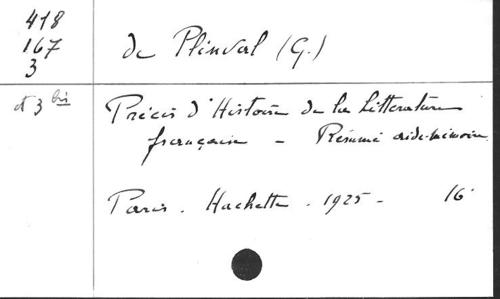 418
167
3
de Plinval (G.)
et 3 bis
Précis d'Histoire de la Littérature
française - Résumé aide-mémoire
Paris. Hachette. 1925 - 16